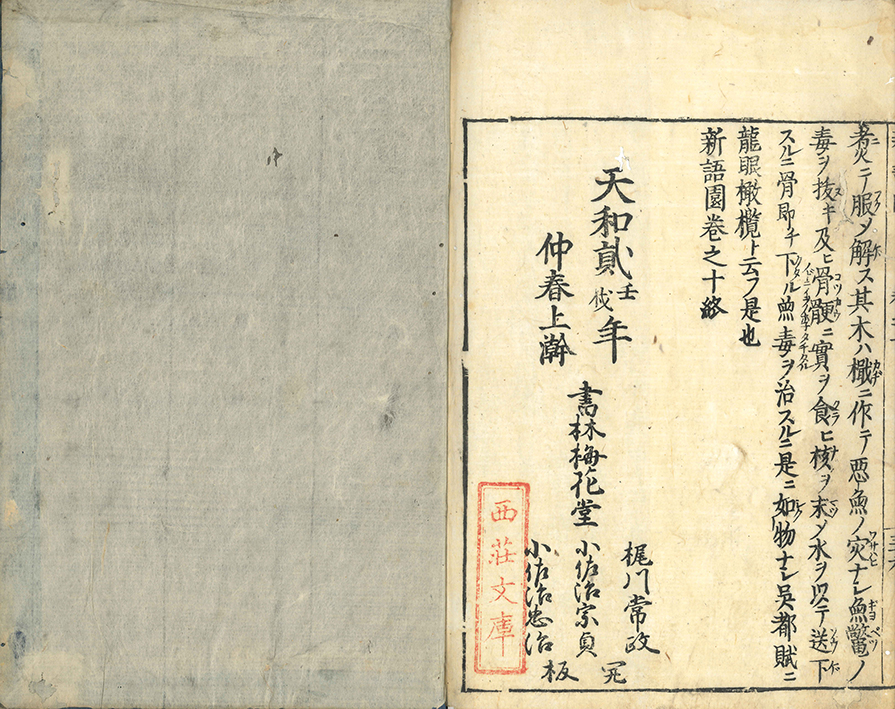 煮テ服ノ解ス其木ハ檝ニ作テ悪魚ノ灾ナシ魚鼈ノ
毒ヲ抜キ及ヒ骨骾ニ實ヲ食ヒ核ヲ末ノ水ヲ以テ送下
スルニ骨即チ下ル魚毒ヲ治スルニ是ニ如物ナシ呉都賦ニ
龍眼橄欖ト云フ是也
新語園巻之十終
天和貳壬戌年
仲春上澣
書林梅花堂
梶川常政
小佐治宗貞
小佐治忠治
板
西荘文庫